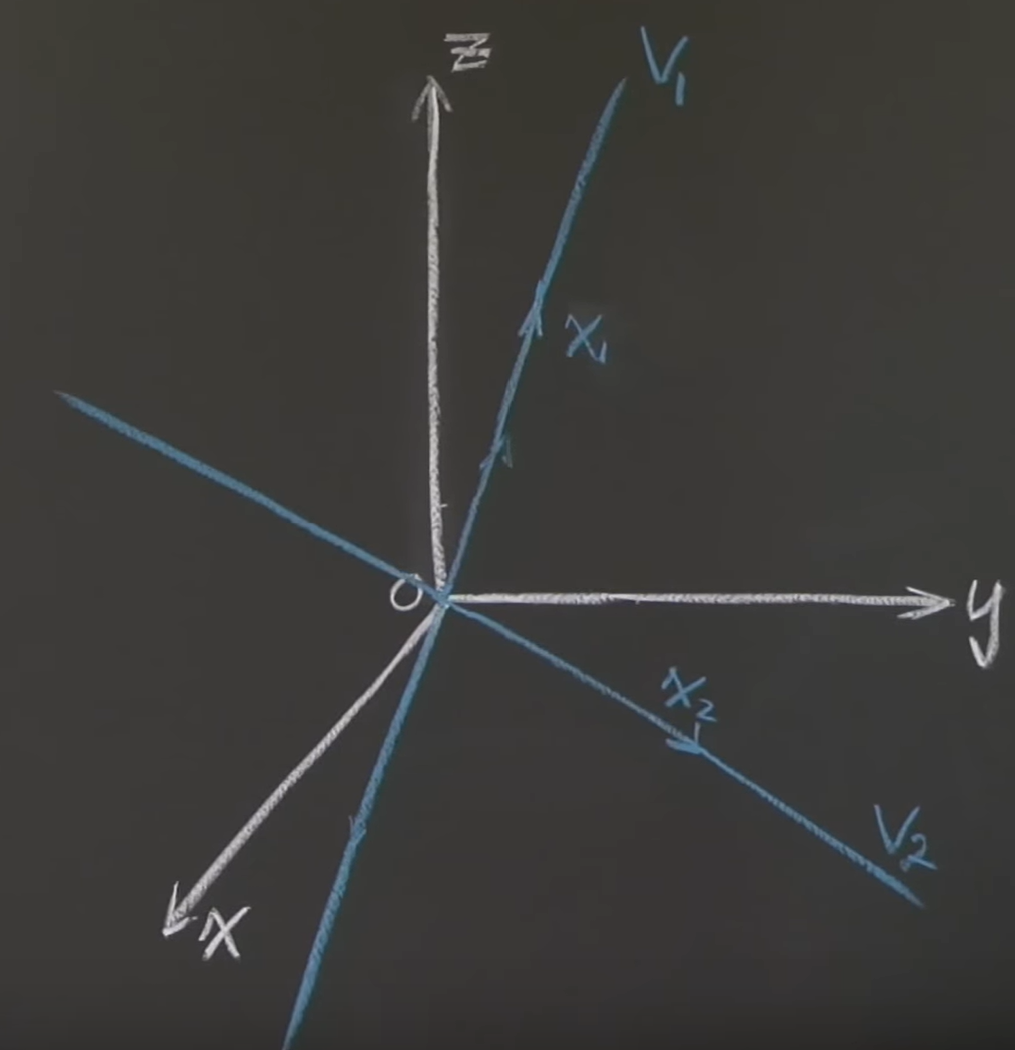 z
V₁
x₁
O
y
x₂
V₂
x